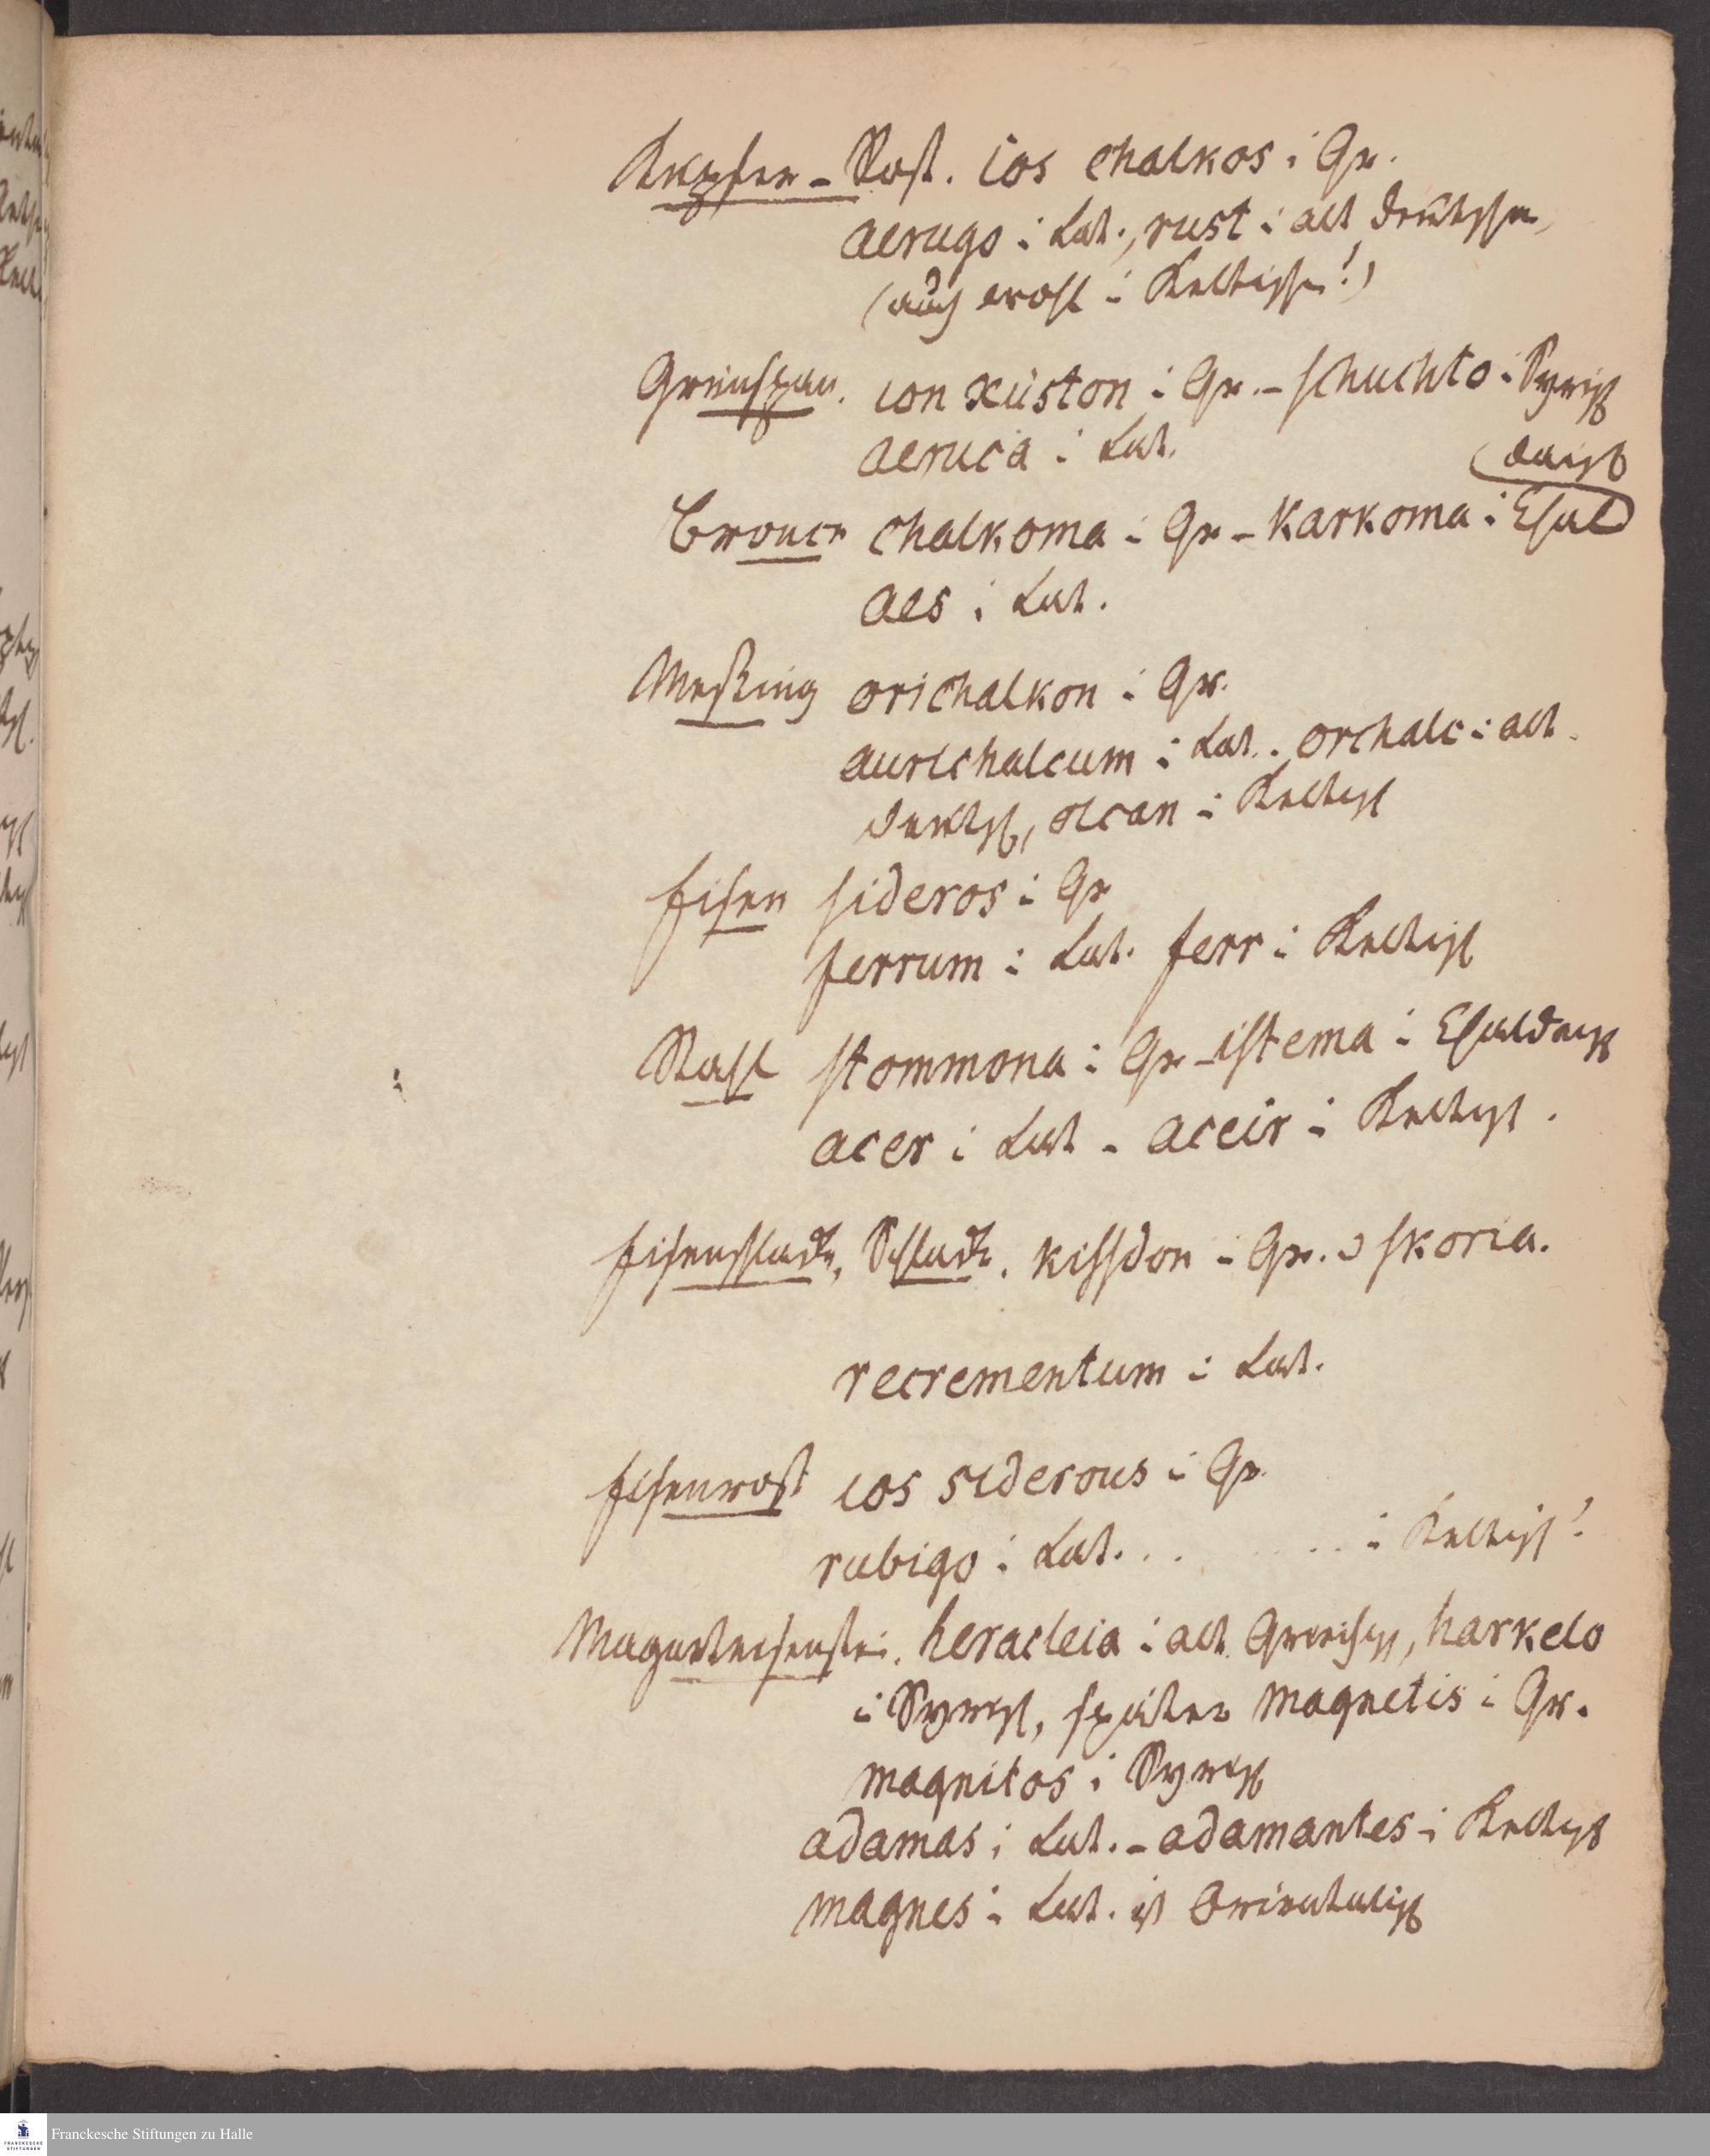 Kupfer-Rost. ios chalkos i Gr.
aerugo i Lat., rust i alt Deutschen,
(auch erost i Keltischen!)
Grünspan. ion xüston i Gr. - schuchto i Syrisch
aeruca i Lat.
Bronce chalkoma i Gr - Karkoma i Chald
(däisch
aes i Lat.
Meßing orichalkon i Gr.
aurichalcum i Lat. orchalc i alt
deutsch, olcan i Keltisch
Eisen sideros i Gr
ferrum i Lat. ferr i Keltisch
Stahl stommona i Gr - istema i Chaldäisch
acer i Lat - aceir i Keltisch.
Eisenschlacke, Schlacke. kissdon i Gr. skoria.
recrementum i Lat.
Eisenrost ios siderous i Gr.
rubigo i Lat. . . . . . i Keltisch!
Magneteisenstein. heracleia i alt Griechisch, harkelo
i Syrisch, später magnetis i Gr.
magnitos i Syrisch
adamas i Lat. - adamantes i Keltisch
magnes i Lat. ist Orientalisch
Franckesche Stiftungen zu Halle
FRANCKESCHE
STIFTUNGEN